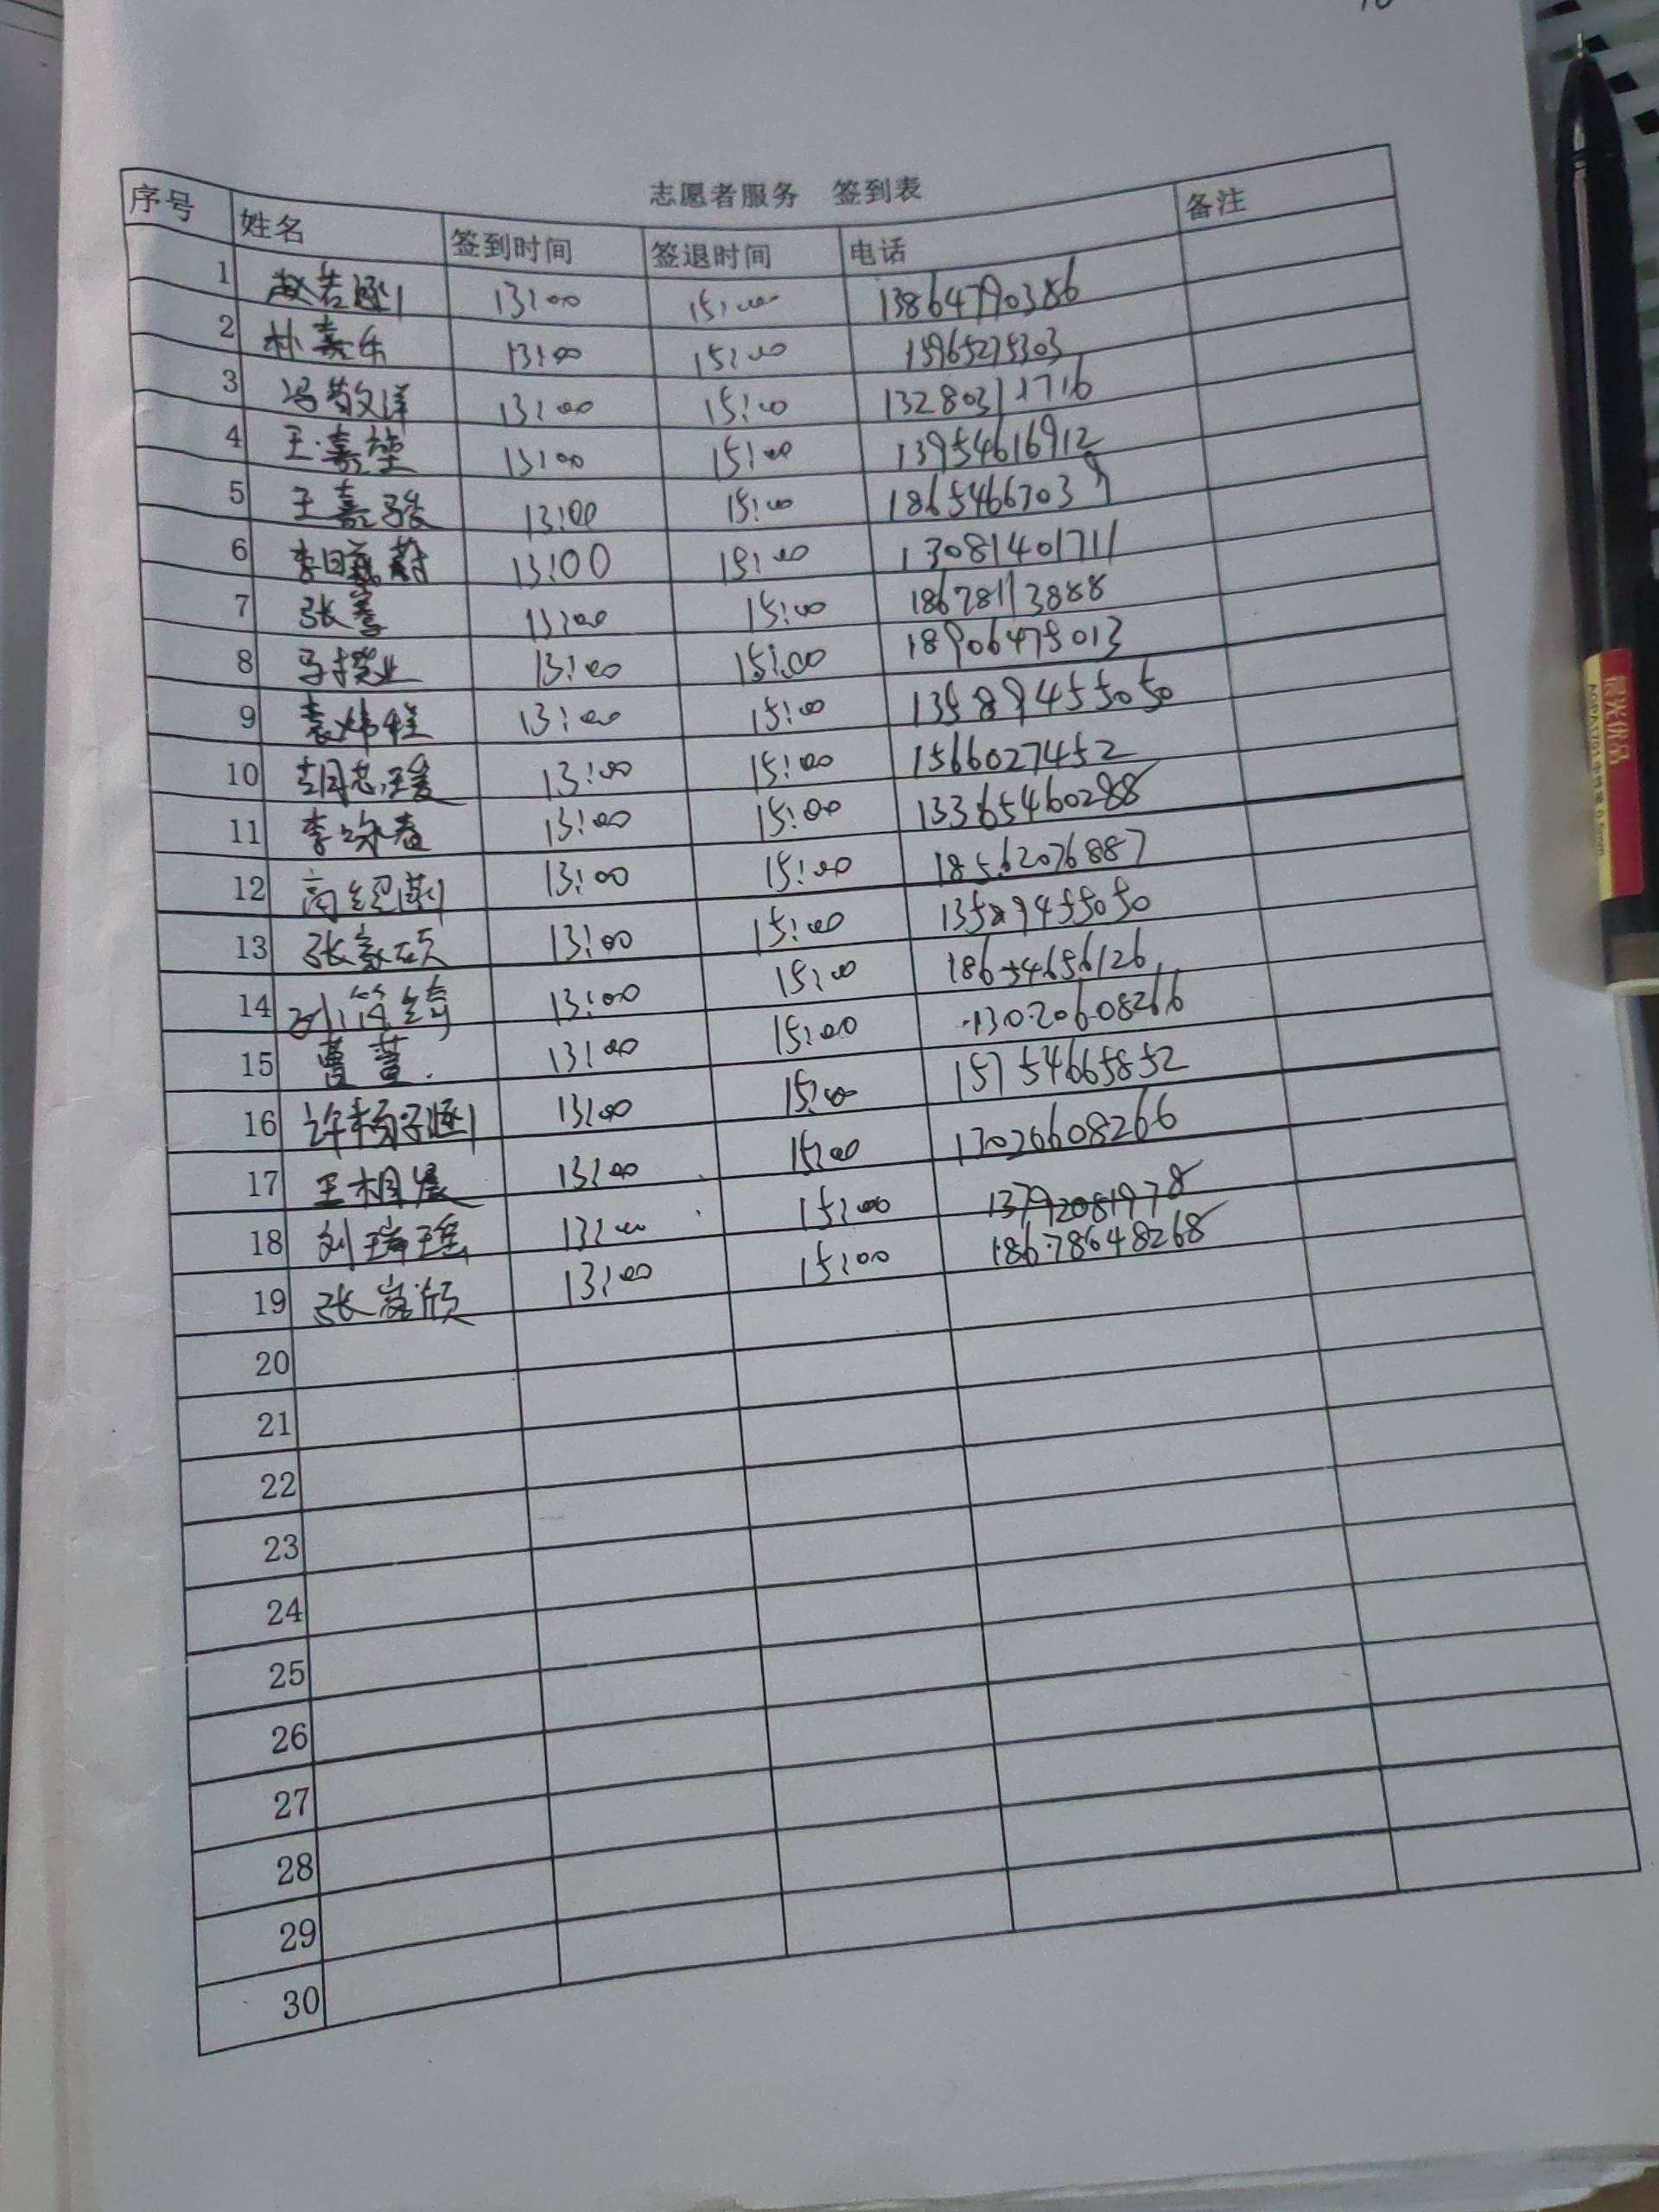 志愿者服务 签到表
序号 姓名 签到时间 签退时间 电话 备注
1 赵若涵 13:00 15:00 13864790386
2 林嘉乐 13:00 15:00 15965275303
3 冯敬文洋 13:00 15:00 13280311716
4 王嘉堃 13:00 15:00 13954616912
5 王嘉骏 13:00 15:00 18654667039
6 李曦蔚 13:00 15:00 13081401711
7 张骞 13:00 15:00 18678113888
8 13:00 15:00 18906475013
9 袁炜程 13:00 15:00 13589455050
10 胡芯瑗 13:00 15:00 1566027452
11 李咏春 13:00 15:00 13365460288
12 13:00 15:00 18562076887
13 张家硕 13:00 15:00 13589455050
14 刘筱绮 13:00 15:00 18654656126
15 曹萱 13:00 15:00 13020608266
16 许杨子涵 13:00 15:00 15754665852
17 王相晨 13:00 15:00 13020608266
18 刘瑞瑶 13:00 15:00 13792081978
19 张嵩颀 13:00 15:00 18678648268
20
21
22
23
24
25
26
27
28
29
30
晨光优品